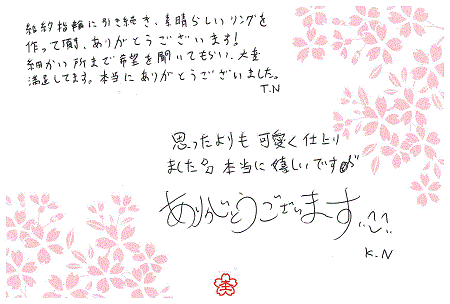 結婚指輪に引き続き、素晴らしいリングを
作って頂、ありがとうございます!
細かい所まで希望を聞いてもらい、大変
満足してます。本当にありがとうございました。
T.N
思ったよりも可愛く仕上り
ました♪ 本当に嬉しいですが
ありがとうございます
K.N